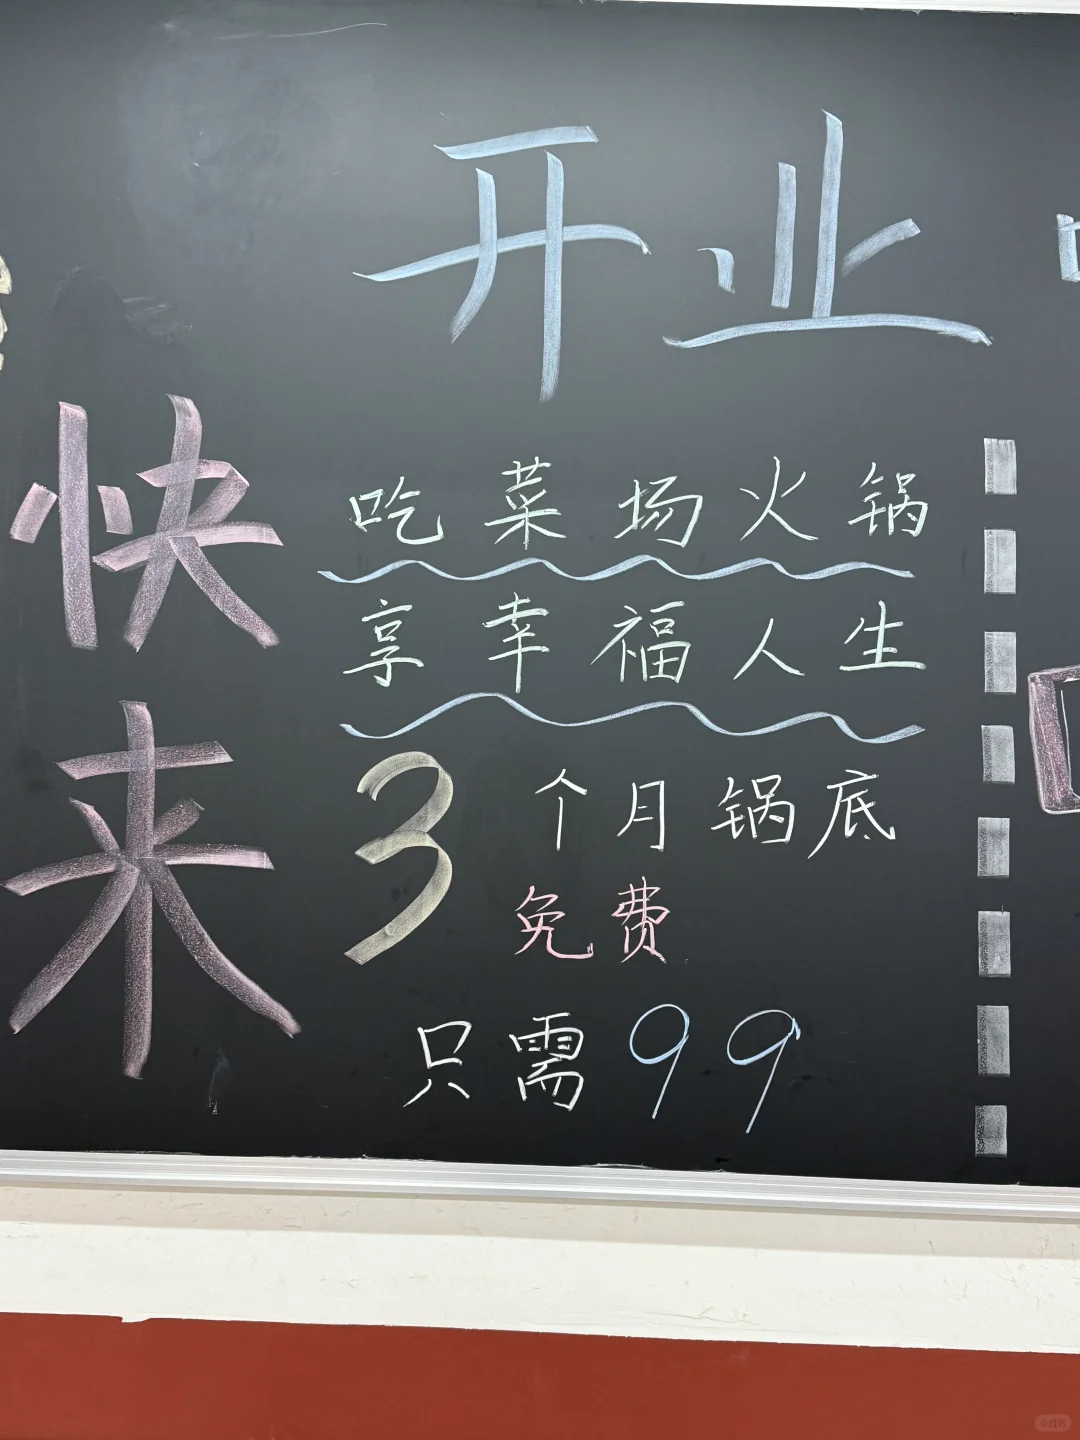 开业
快来
吃菜场火锅
享幸福人生
3个月锅底
免费
只需99
小红书